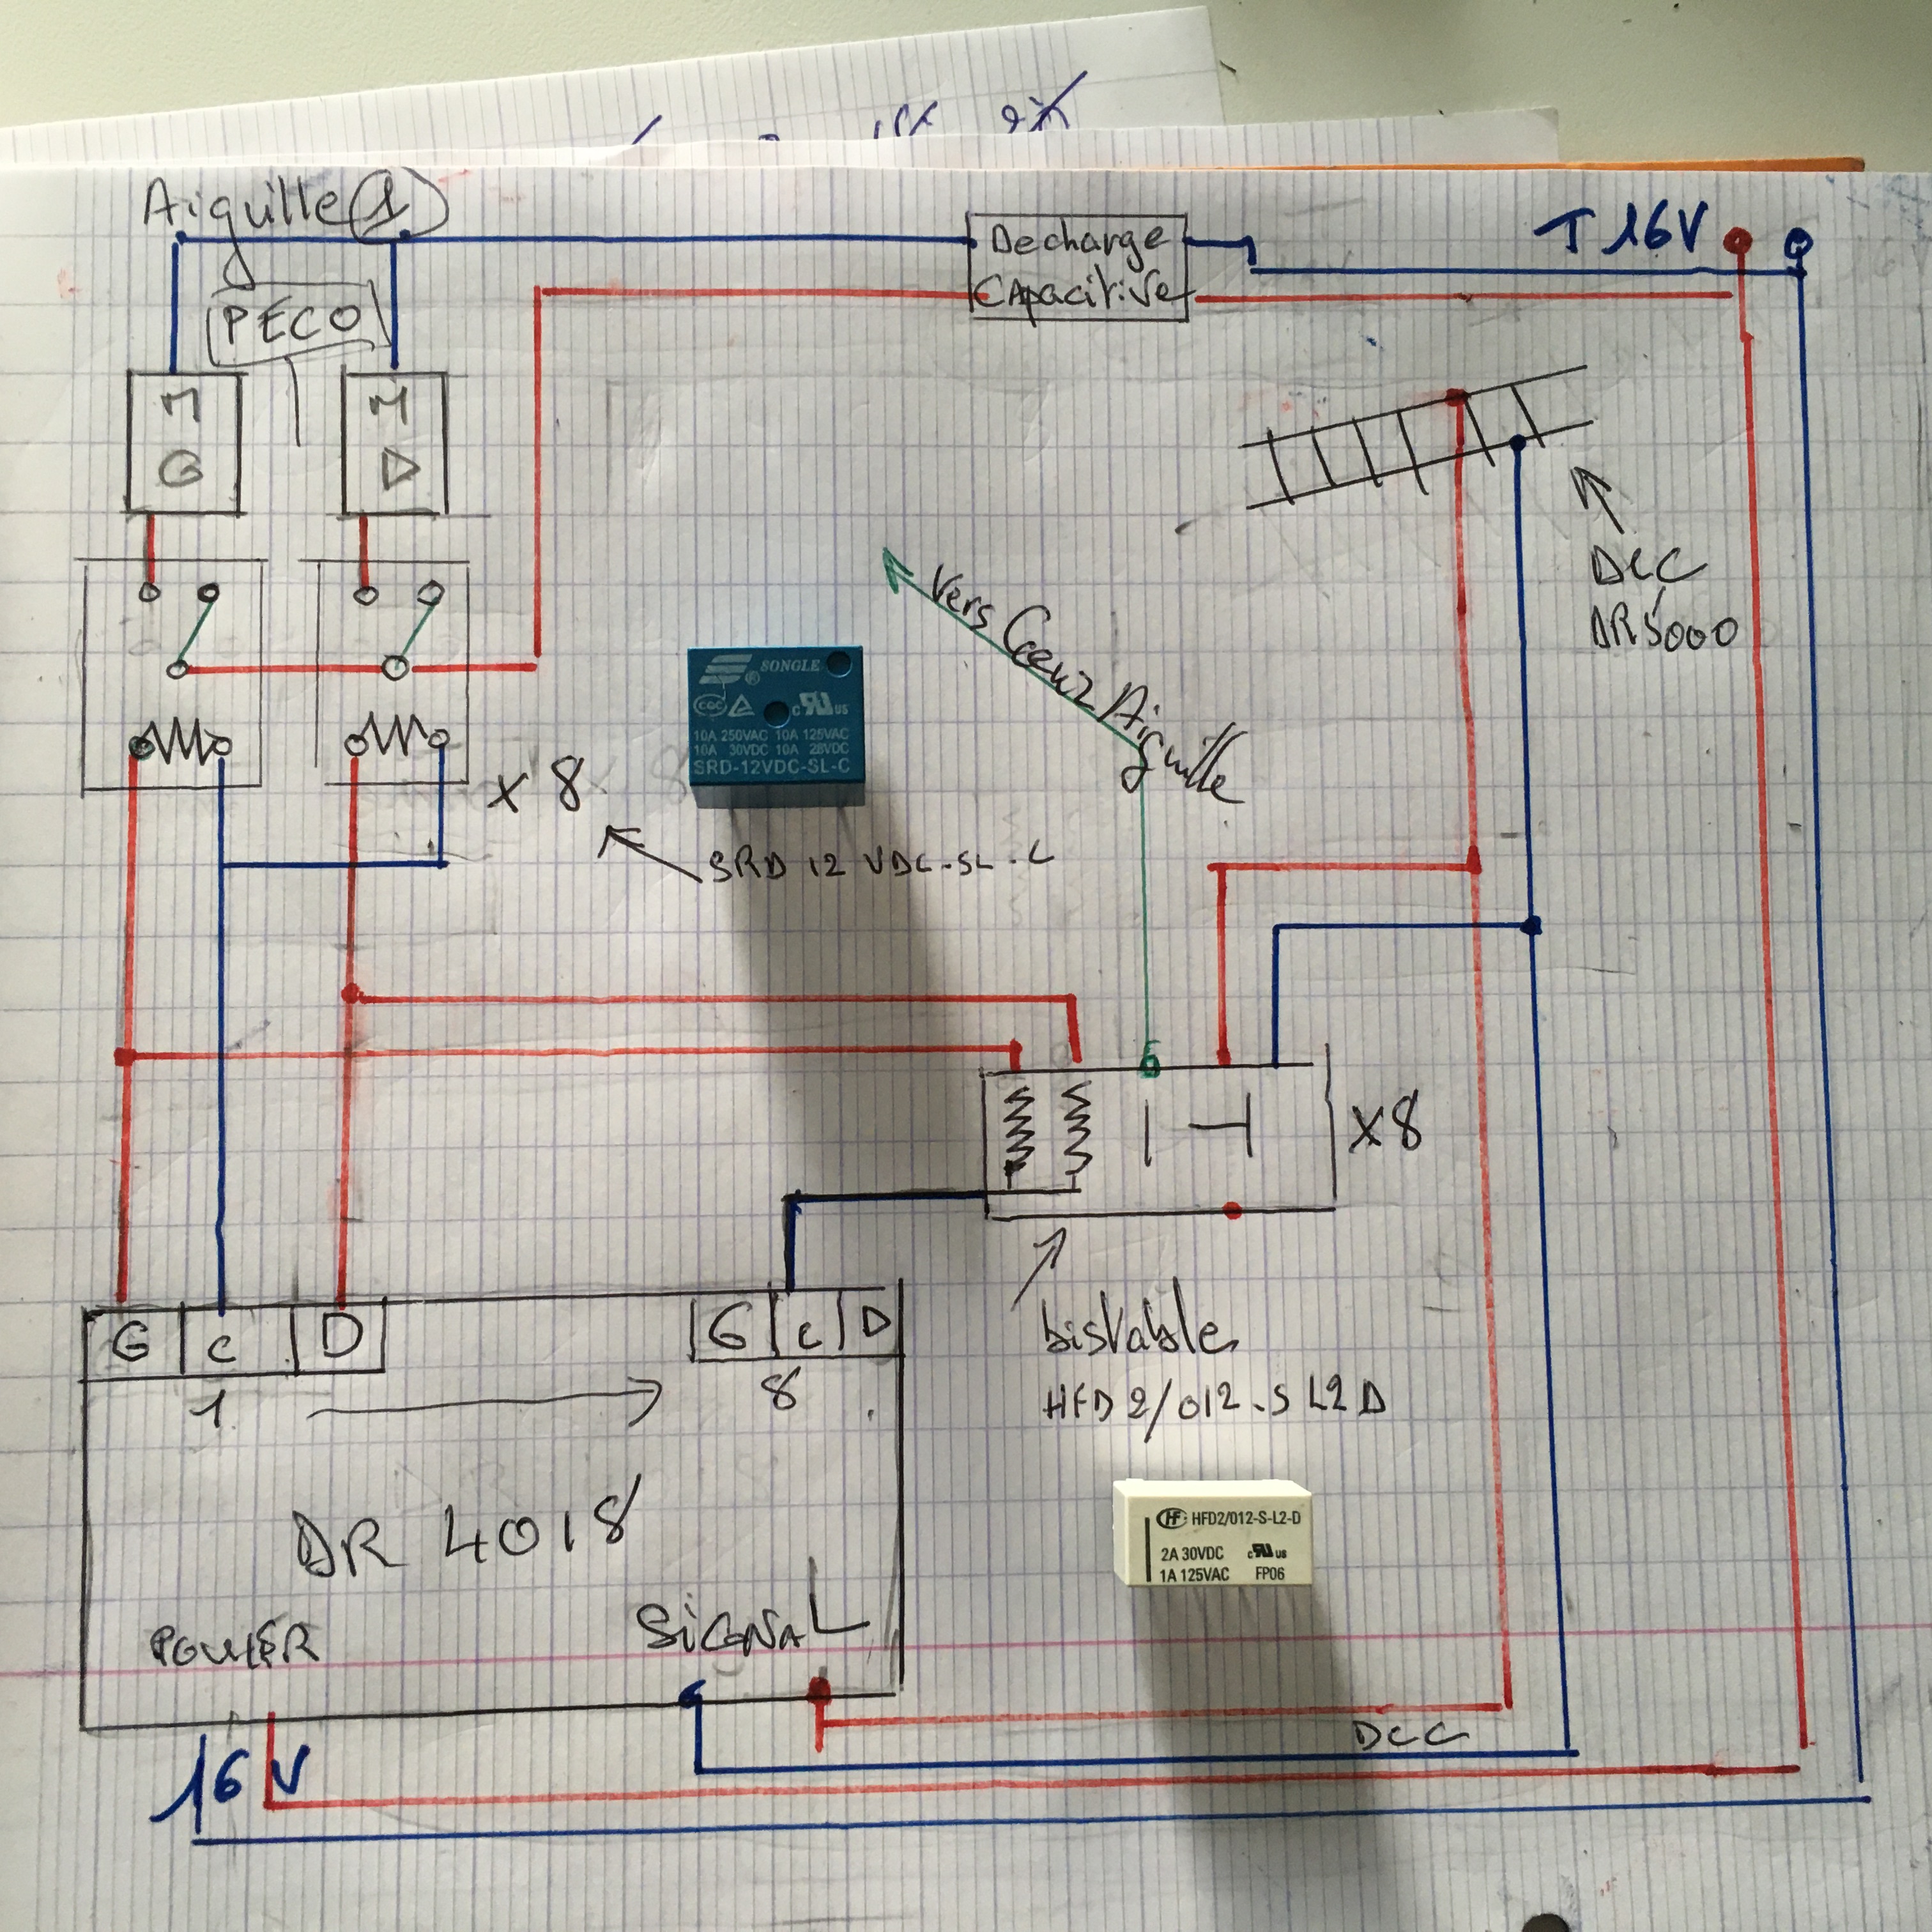 Aiguille 1
PECO
Decharge
CApacitive
T 16V
M
G
M
D
DCC
DR5000
Vers Coeur Aiguille
SONGLE
®
CQC
c US
10A 250VAC 10A 125VAC
10A 30VDC 10A 28VDC
SRD-12VDC-SL-C
x 8
SRD 12 VDC-SL-C
x8
G C D
1
G C D
8
bistable
HFD2/012-S L2D
DR 4018
HF HFD2/012-S-L2-D
2A 30VDC c US
1A 125VAC FP06
POWER
SIGNAL
DCC
16 V